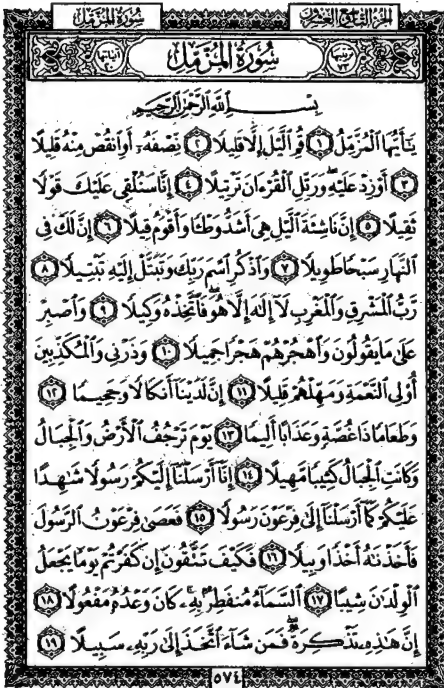 الجزء التاسع والعشرون
سُورَةُ المُزَّمِّل
ترتيبها ٧٣
سُورَةُ المُزَّمِّل
آياتها ٢٠
بِسۡمِ ٱللَّهِ ٱلرَّحۡمَٰنِ ٱلرَّحِيمِ
يَٰٓأَيُّهَا ٱلۡمُزَّمِّلُ ١ قُمِ ٱلَّيۡلَ إِلَّا قَلِيلٗا ٢ نِّصۡفَهُۥٓ أَوِ ٱنقُصۡ مِنۡهُ قَلِيلًا
٣ أَوۡ زِدۡ عَلَيۡهِ وَرَتِّلِ ٱلۡقُرۡءَانَ تَرۡتِيلًا ٤ إِنَّا سَنُلۡقِي عَلَيۡكَ قَوۡلٗا
ثَقِيلًا ٥ إِنَّ نَاشِئَةَ ٱلَّيۡلِ هِيَ أَشَدُّ وَطۡـٔٗا وَأَقۡوَمُ قِيلًا ٦ إِنَّ لَكَ فِي
ٱلنَّهَارِ سَبۡحٗا طَوِيلٗا ٧ وَٱذۡكُرِ ٱسۡمَ رَبِّكَ وَتَبَتَّلۡ إِلَيۡهِ تَبۡتِيلٗا ٨
رَّبُّ ٱلۡمَشۡرِقِ وَٱلۡمَغۡرِبِ لَآ إِلَٰهَ إِلَّا هُوَ فَٱتَّخِذۡهُ وَكِيلٗا ٩ وَٱصۡبِرۡ
عَلَىٰ مَا يَقُولُونَ وَٱهۡجُرۡهُمۡ هَجۡرٗا جَمِيلٗا ١٠ وَذَرۡنِي وَٱلۡمُكَذِّبِينَ
أُوْلِي ٱلنَّعۡمَةِ وَمَهِّلۡهُمۡ قَلِيلًا ١١ إِنَّ لَدَيۡنَآ أَنكَالٗا وَجَحِيمٗا ١٢
وَطَعَامٗا ذَا غُصَّةٖ وَعَذَابًا أَلِيمٗا ١٣ يَوۡمَ تَرۡجُفُ ٱلۡأَرۡضُ وَٱلۡجِبَالُ
وَكَانَتِ ٱلۡجِبَالُ كَثِيبٗا مَّهِيلًا ١٤ إِنَّآ أَرۡسَلۡنَآ إِلَيۡكُمۡ رَسُولٗا شَٰهِدًا
عَلَيۡكُمۡ كَمَآ أَرۡسَلۡنَآ إِلَىٰ فِرۡعَوۡنَ رَسُولٗا ١٥ فَعَصَىٰ فِرۡعَوۡنُ ٱلرَّسُولَ
فَأَخَذۡنَٰهُ أَخۡذٗا وَبِيلٗا ١٦ فَكَيۡفَ تَتَّقُونَ إِن كَفَرۡتُمۡ يَوۡمٗا يَجۡعَلُ
ٱلۡوِلۡدَٰنَ شِيبًا ١٧ ٱلسَّمَآءُ مُنفَطِرُۢ بِهِۦ كَانَ وَعۡدُهُۥ مَفۡعُولًا ١٨
إِنَّ هَٰذِهِۦ تَذۡكِرَةٞ فَمَن شَآءَ ٱتَّخَذَ إِلَىٰ رَبِّهِۦ سَبِيلًا ١٩
٥٧٤